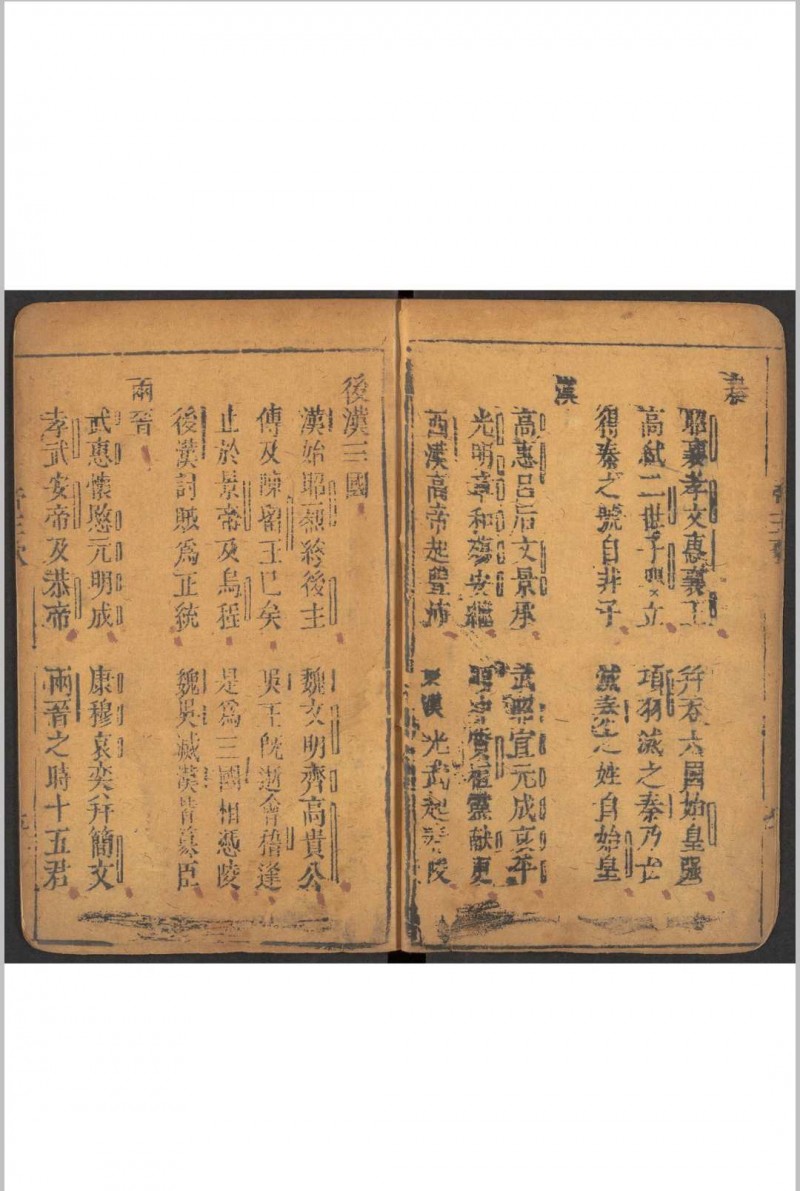 秦
昭襄孝文惠襄王 并吞六國始皇強
高弑二世子嬰立 項羽滅之秦乃亡
得秦之號自非子 滅秦之姓自始皇
漢
高惠呂后文景承 武昭宣元成哀平
光明章和殤安繼 順冲質桓靈献更
西漢高帝起豐沛 東漢光武起舂陵
後漢三國
漢始昭烈終後主 魏文明齊高貴公
傳及陳留王已矣 吳王既逝會稽逢
止於景帝及烏程 是爲三國相憑陵
後漢討賊爲正統 魏吳滅漢皆篡臣
兩晉
武惠懷愍元明成 康穆哀奕并簡文
孝武安帝及恭帝 兩晉之時十五君